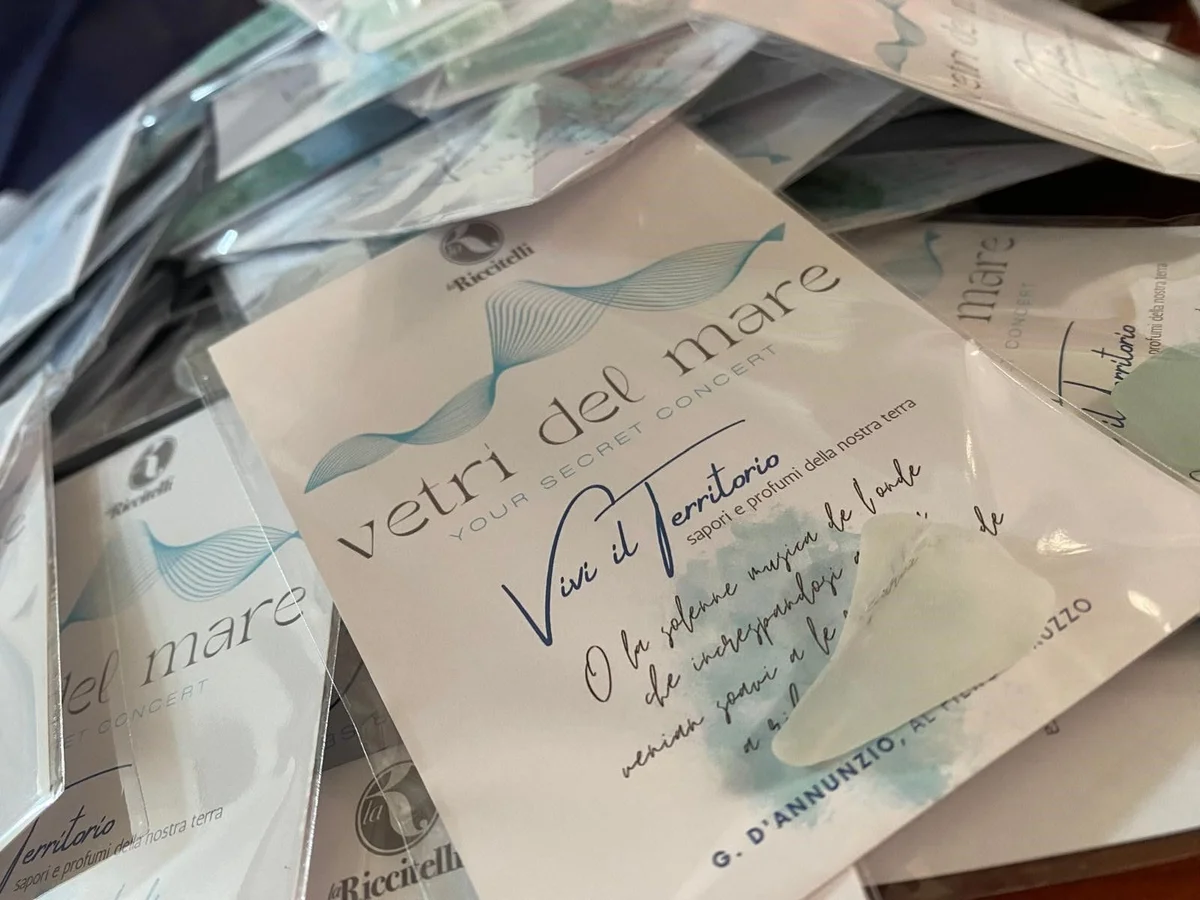 la Riccitelli
vetri del mare
YOUR SECRET CONCERT
Vivi il Territorio
sapori e profumi della nostra terra
O la solenne musica de l'onde
che increspandosi de
venian soavi a le
a
G. D'ANNUNZIO, AL
la Riccitelli
del mare
ET CONCERT
Territorio
sapori e profumi della nostra terra
la
la Riccitelli
mare
CONCERT
il Territorio
profumi della nostra terra
vetri del m